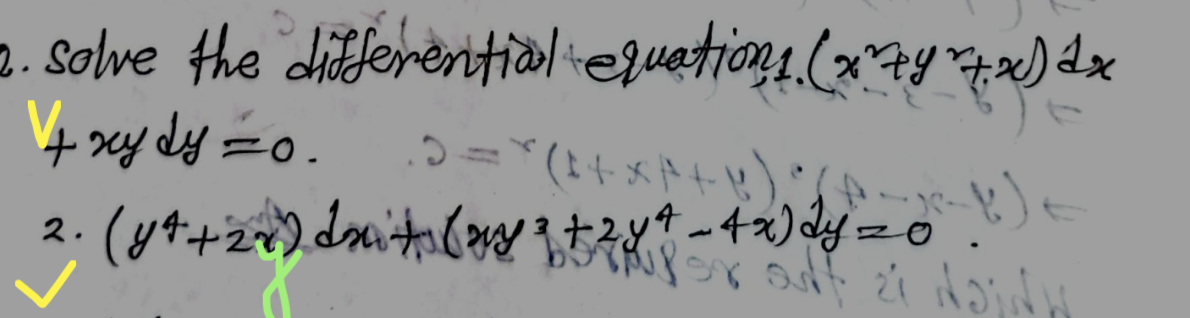 2. Solve the differential equations 1. (x²+y²+x) dx
+ xy dy = 0.
2. (y⁴+2y) dx + (xy³+2y⁴-4x) dy = 0.